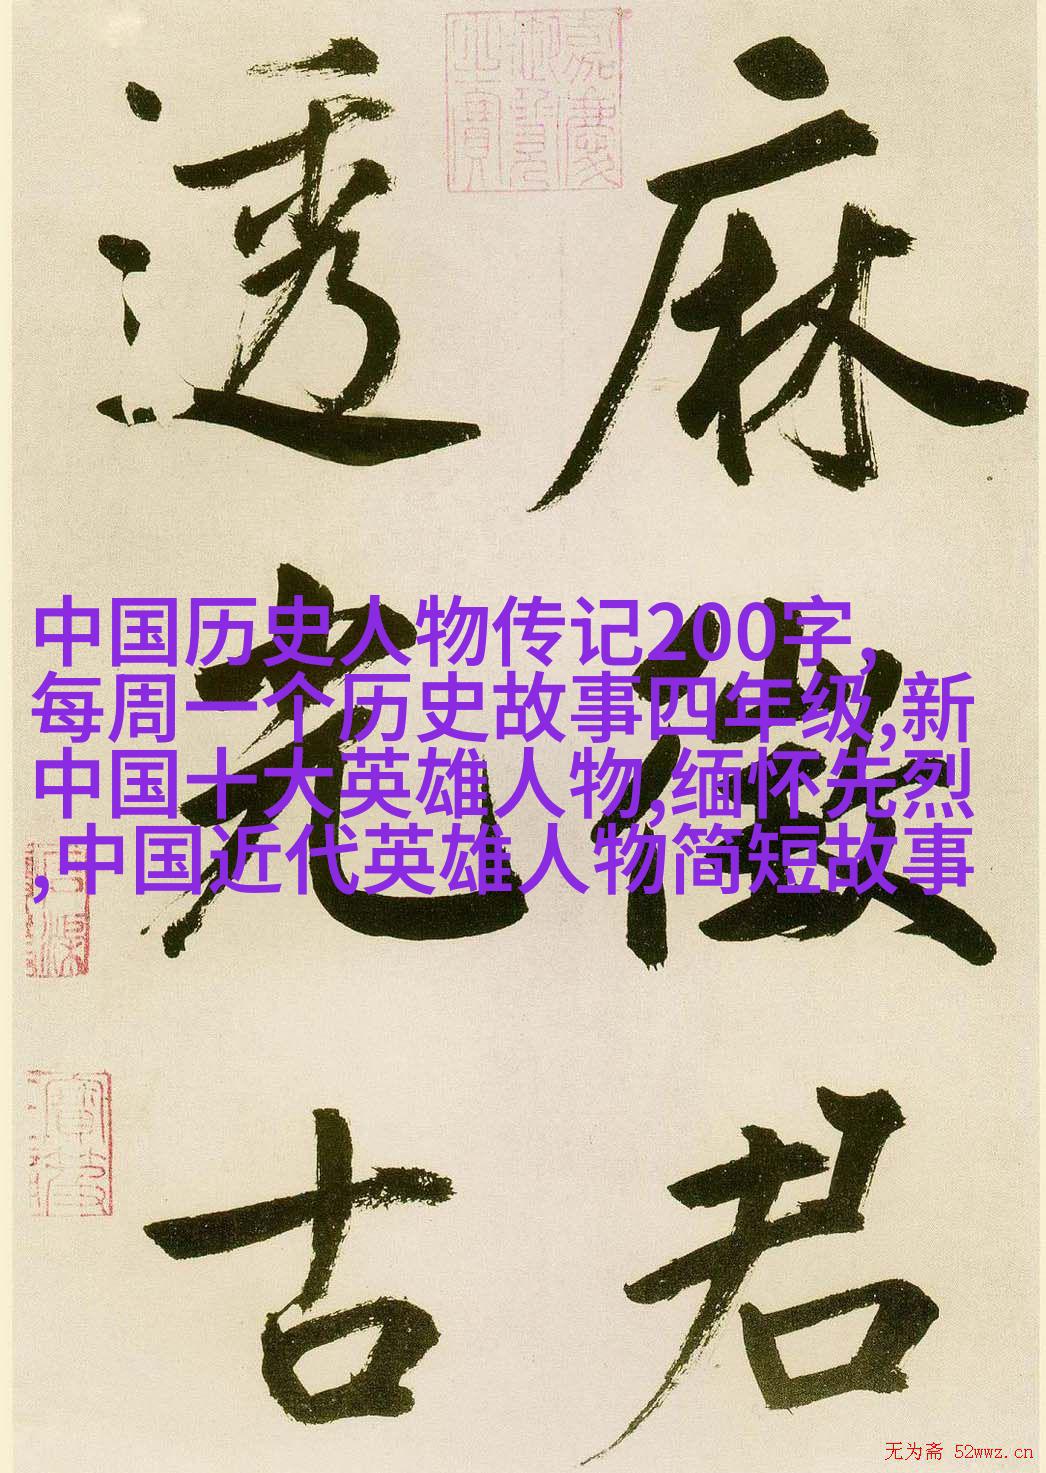 麻徵君
透光古
嘉慶御覽之寶
中国历史人物传记200字,
每周一个历史故事四年级,新
中国十大英雄人物,缅怀先烈
,中国近代英雄人物简短故事
无为斋 52wwz.cn